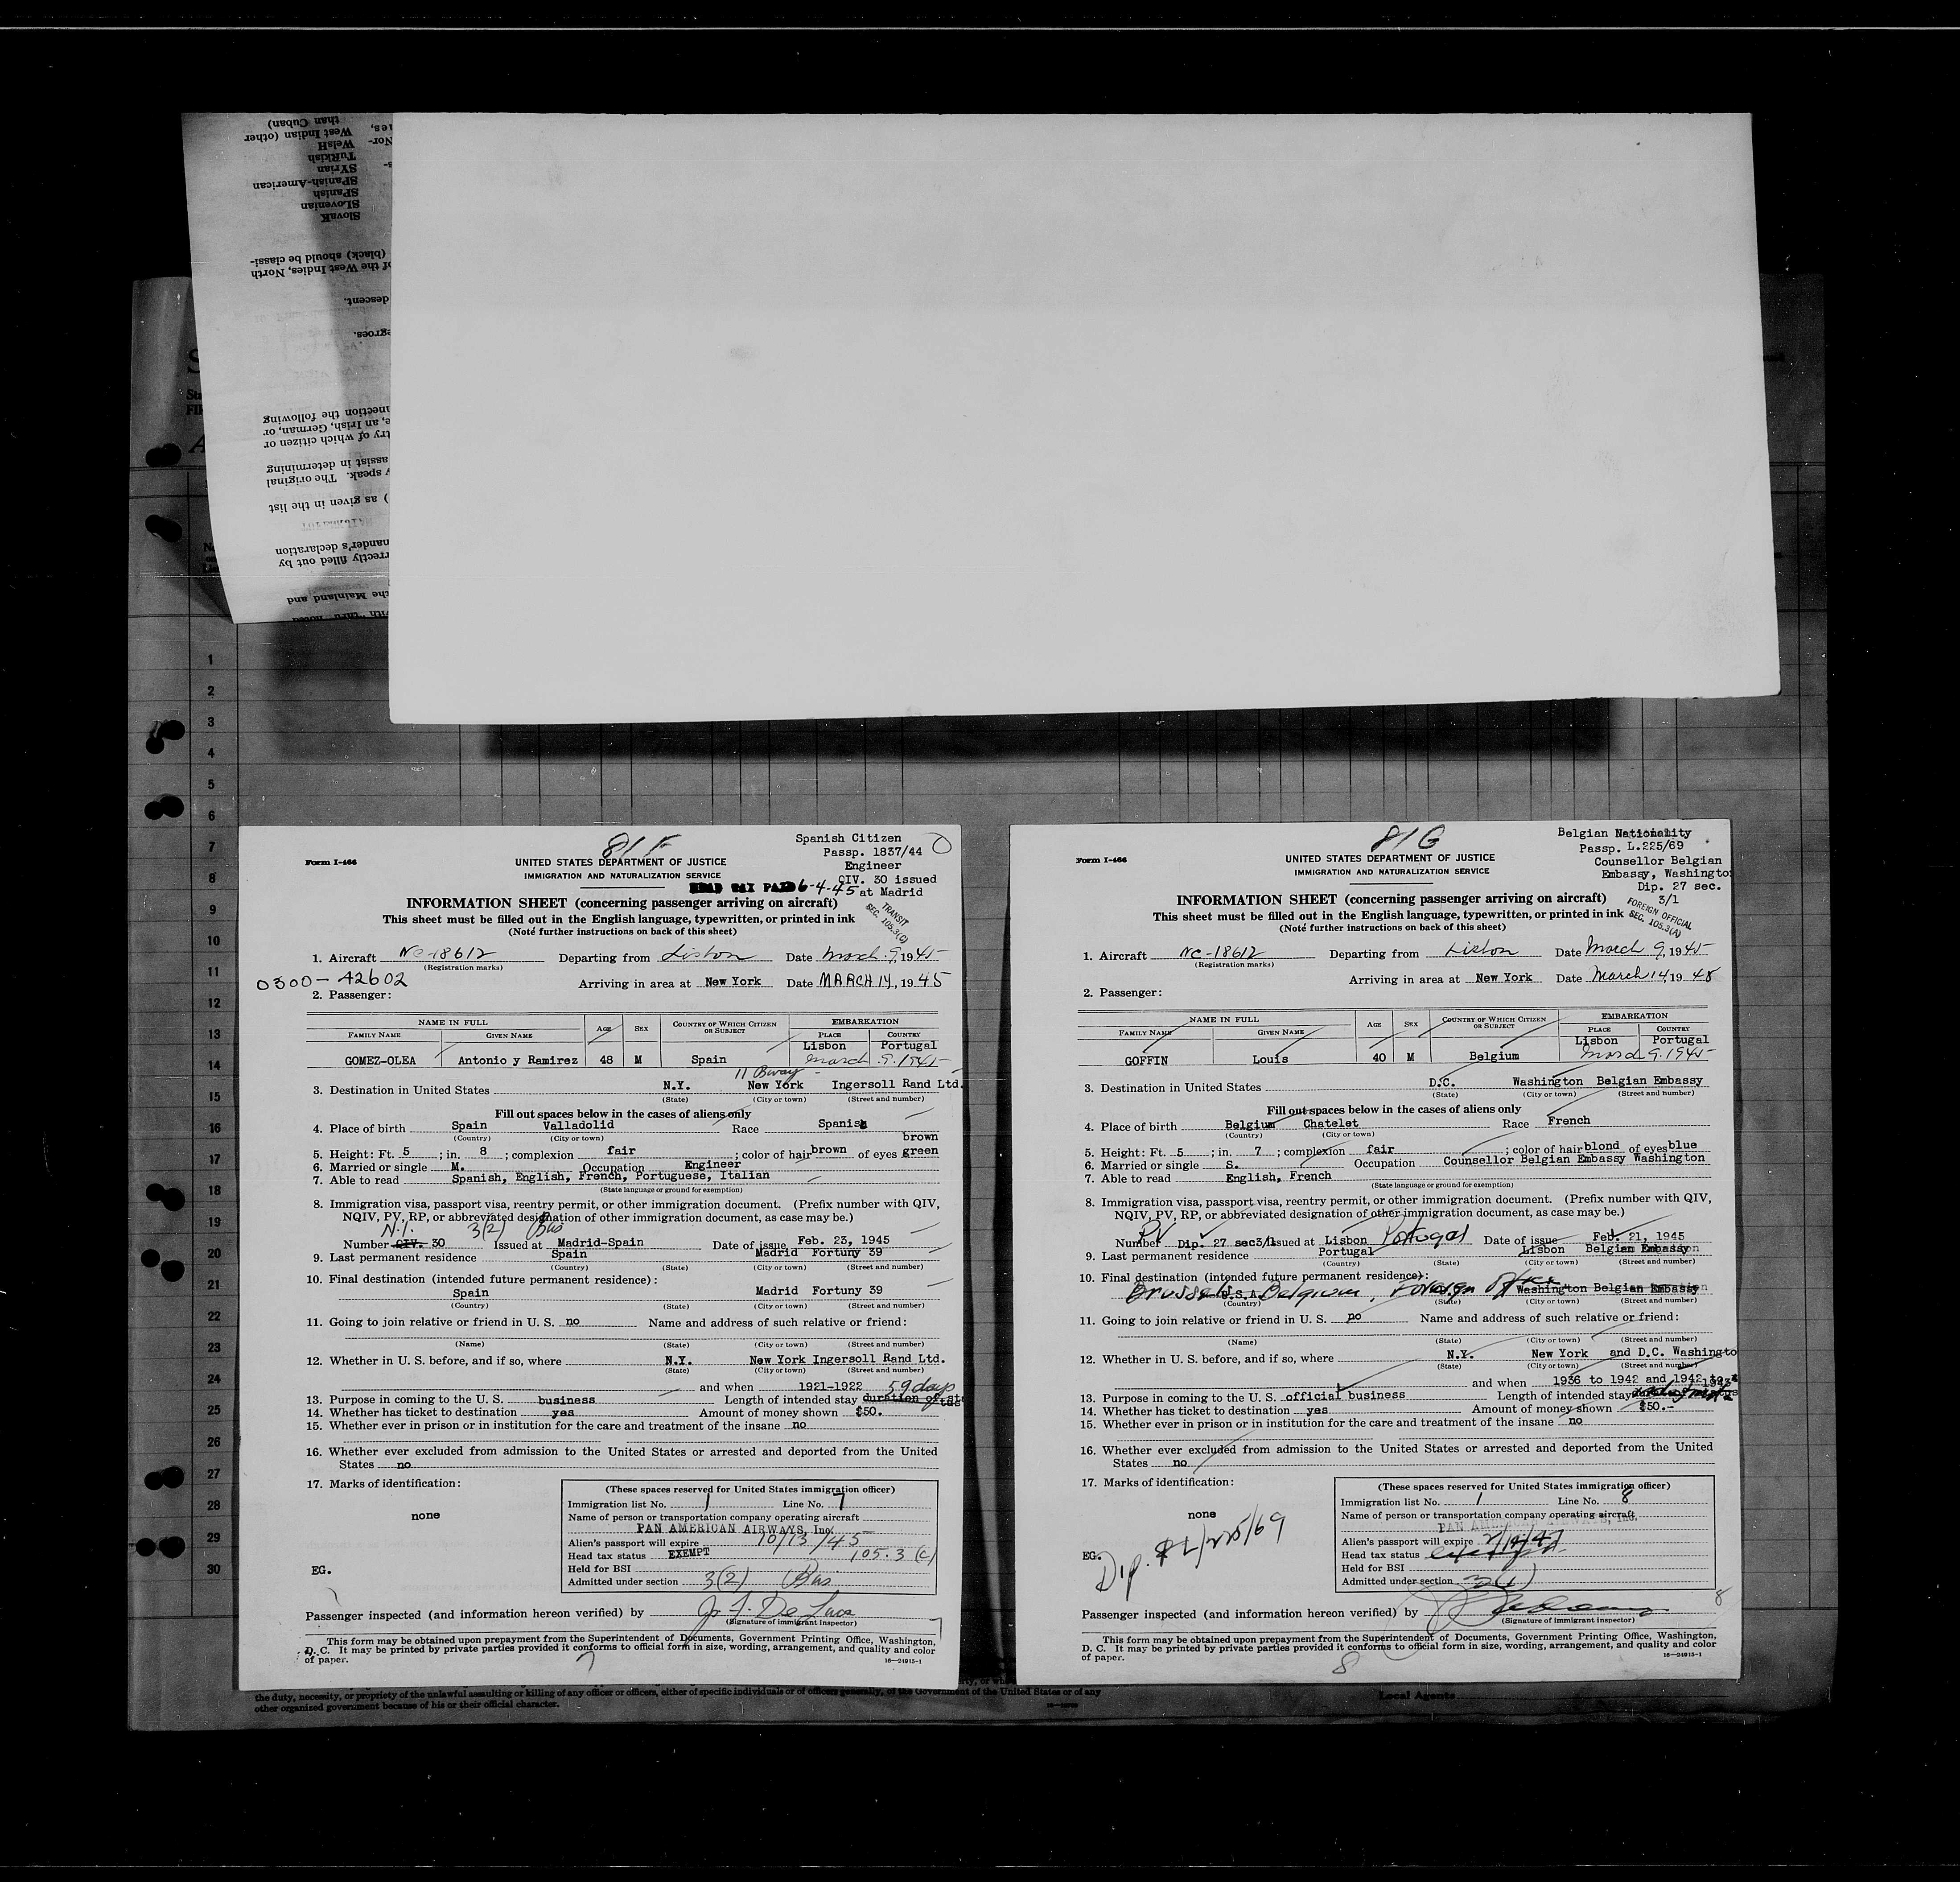 than Cuban)
West Indian (other
WelsH
TuRkish
SYrian
SPanish-American
SPanish
SLovenian
SlovaK
(black) should be classi-
of the West Indies, North
descent.
egroes.
nection the following
e, an Irish, German, or
try of which citizen or
assist in determining
y speak. The original
) as given in the list
mander's declaration
rrectly filled out by
the Mainland and
1
2
3
4
5
6
7
8
9
10
11
12
13
14
15
16
17
18
19
20
21
22
23
24
25
26
27
28
29
30
81F
Spanish Citizen
Passp. 1837/44
Engineer
QIV. 30 issued
at Madrid
Form I-466
UNITED STATES DEPARTMENT OF JUSTICE
IMMIGRATION AND NATURALIZATION SERVICE
HEAD TAX PAID 6-4-45
INFORMATION SHEET (concerning passenger arriving on aircraft)
This sheet must be filled out in the English language, typewritten, or printed in ink
(Note further instructions on back of this sheet)
TRANSIT
SEC. 105.3(C)
1. Aircraft NC-18612 Departing from Lisbon Date March 9, 1945
(Registration marks)
0300-42602
Arriving in area at New York Date MARCH 14, 1945
2. Passenger:
NAME IN FULL AGE SEX COUNTRY OF WHICH CITIZEN OR SUBJECT EMBARKATION
FAMILY NAME GIVEN NAME PLACE COUNTRY
Lisbon Portugal
GOMEZ-OLEA Antonio y Ramirez 48 M Spain March 9. 1945
11 Bway
3. Destination in United States N.Y. New York Ingersoll Rand Ltd.
(State) (City or town) (Street and number)
Fill out spaces below in the cases of aliens only
4. Place of birth Spain Valladolid Race Spanish
(Country) (City or town)
brown
5. Height: Ft. 5; in. 8; complexion fair; color of hair brown of eyes green
6. Married or single M. Occupation Engineer
7. Able to read Spanish, English, French, Portuguese, Italian
(State language or ground for exemption)
8. Immigration visa, passport visa, reentry permit, or other immigration document. (Prefix number with QIV,
NQIV, PV, RP, or abbreviated designation of other immigration document, as case may be.)
N.I. 3(2) Bus
Number QIV. 30 Issued at Madrid-Spain Date of issue Feb. 23, 1945
9. Last permanent residence Spain Madrid Fortuny 39
(Country) (State) (City or town) (Street and number)
10. Final destination (intended future permanent residence):
Spain Madrid Fortuny 39
(Country) (State) (City or town) (Street and number)
11. Going to join relative or friend in U. S. no Name and address of such relative or friend:
(Name) (State) (City or town) (Street and number)
12. Whether in U. S. before, and if so, where N.Y. New York Ingersoll Rand Ltd.
(State) (City or town) (Street and number)
and when 1921-1922 59 days
13. Purpose in coming to the U. S. business Length of intended stay duration of
14. Whether has ticket to destination yes Amount of money shown $50.
15. Whether ever in prison or in institution for the care and treatment of the insane no
16. Whether ever excluded from admission to the United States or arrested and deported from the United
States no
17. Marks of identification:
none
EG.
(These spaces reserved for United States immigration officer)
Immigration list No. 1 Line No. 7
Name of person or transportation company operating aircraft
PAN AMERICAN AIRWAYS, Inc.
Alien's passport will expire 10/13/45
Head tax status EXEMPT 105.3 (c)
Held for BSI
Admitted under section 3(2) Bus
Passenger inspected (and information hereon verified) by
(Signature of immigrant inspector)
This form may be obtained upon prepayment from the Superintendent of Documents, Government Printing Office, Washington,
D. C. It may be printed by private parties provided it conforms to official form in size, wording, arrangement, and quality and color
of paper.
16—24915-1
7
81G
Belgian Nationality
Passp. L.225/69
Counsellor Belgian
Embassy, Washington
Dip. 27 sec.
3/1
Form I-466
UNITED STATES DEPARTMENT OF JUSTICE
IMMIGRATION AND NATURALIZATION SERVICE
INFORMATION SHEET (concerning passenger arriving on aircraft)
This sheet must be filled out in the English language, typewritten, or printed in ink
(Note further instructions on back of this sheet)
FOREIGN OFFICIAL
SEC. 105.3(A)
1. Aircraft NC-18612 Departing from Lisbon Date March 9, 1945
(Registration marks)
Arriving in area at New York Date March 14, 1945
2. Passenger:
NAME IN FULL AGE SEX COUNTRY OF WHICH CITIZEN OR SUBJECT EMBARKATION
FAMILY NAME GIVEN NAME PLACE COUNTRY
Lisbon Portugal
GOFFIN Louis 40 M Belgium March 9. 1945
3. Destination in United States D.C. Washington Belgian Embassy
(State) (City or town) (Street and number)
Fill out spaces below in the cases of aliens only
4. Place of birth Belgium Chatelet Race French
(Country) (City or town)
5. Height: Ft. 5; in. 7; complexion fair; color of hair blond of eyes blue
6. Married or single S. Occupation Counsellor Belgian Embassy Washington
7. Able to read English, French
(State language or ground for exemption)
8. Immigration visa, passport visa, reentry permit, or other immigration document. (Prefix number with QIV,
NQIV, PV, RP, or abbreviated designation of other immigration document, as case may be.)
PV
Number Dip. 27 sec3/1 Issued at Lisbon Portugal Date of issue Feb. 21, 1945
9. Last permanent residence Portugal Lisbon Belgian Embassy
(Country) (State) (City or town) (Street and number)
10. Final destination (intended future permanent residence):
Brussels U.S.A. Belgium, Foreign Office Washington Belgian Embassy
(Country) (State) (City or town) (Street and number)
11. Going to join relative or friend in U. S. no Name and address of such relative or friend:
(Name) (State) (City or town) (Street and number)
12. Whether in U. S. before, and if so, where N.Y. New York and D.C. Washington
(State) (City or town) (Street and number)
and when 1936 to 1942 and 1942 to 1943
13. Purpose in coming to the U. S. official business Length of intended stay
14. Whether has ticket to destination yes Amount of money shown $50.-
15. Whether ever in prison or in institution for the care and treatment of the insane no
16. Whether ever excluded from admission to the United States or arrested and deported from the United
States no
17. Marks of identification:
none
EG.
Dip.
(These spaces reserved for United States immigration officer)
Immigration list No. 1 Line No. 8
Name of person or transportation company operating aircraft
PAN AMERICAN AIRWAYS, Inc.
Alien's passport will expire
Head tax status
Held for BSI
Admitted under section 3(1)
8
Passenger inspected (and information hereon verified) by
(Signature of immigrant inspector)
This form may be obtained upon prepayment from the Superintendent of Documents, Government Printing Office, Washington,
D. C. It may be printed by private parties provided it conforms to official form in size, wording, arrangement, and quality and color
of paper.
16—24915-1
8
the duty, necessity, or propriety of the unlawful assaulting or killing of any officer or officers, either of specific individuals or of officers generally, of the Government of the United States or of any
other organized government because of his or their official character.
Local Agents